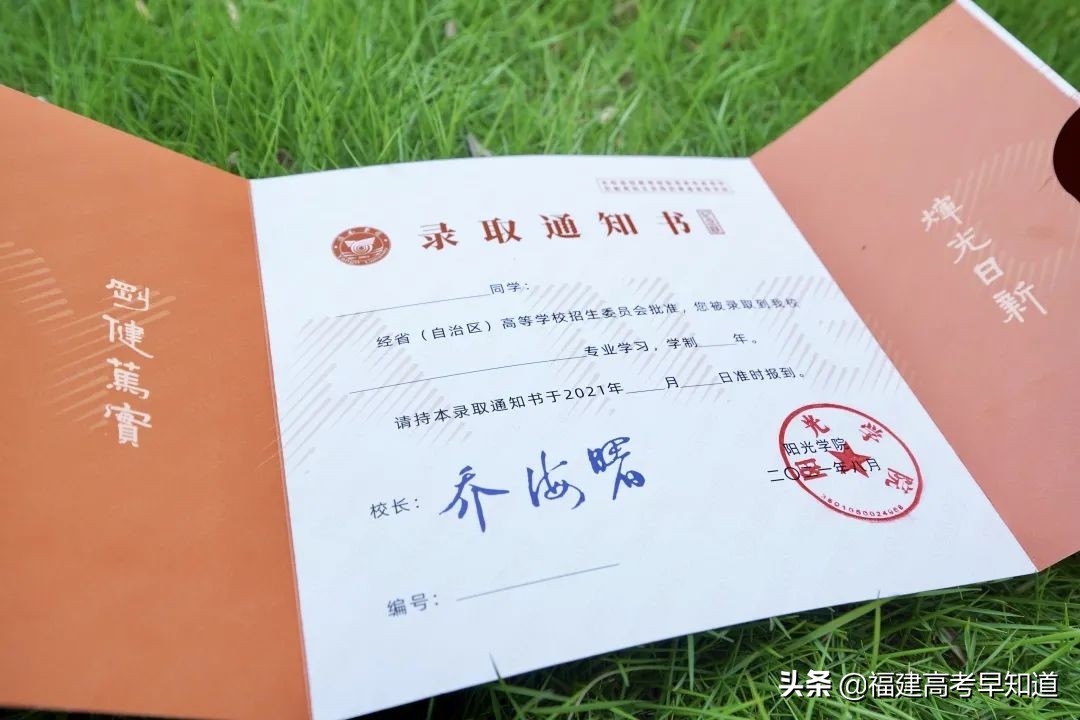 剛健篤實
录取通知书
同学：
经省（自治区）高等学校招生委员会批准，您被录取到我校
专业学习，学制____年。
请持本录取通知书于2021年____月____日准时报到。
阳光学院
二〇二一年八月
阳光学院
校长：乔海曙
编号：
輝光日新
头条 @福建高考早知道